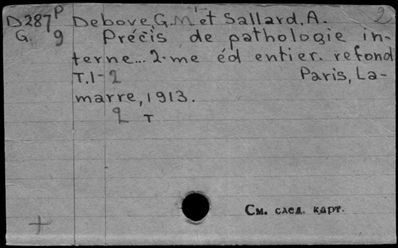 D287 P Debove, G.M. et Sallard, A. 2
G. 9 Précis de pathologie in-
terne... 2-me éd entier. refond
T.1-2 Paris, La-
marre, 1913.
2 т
См. след. карт.
+